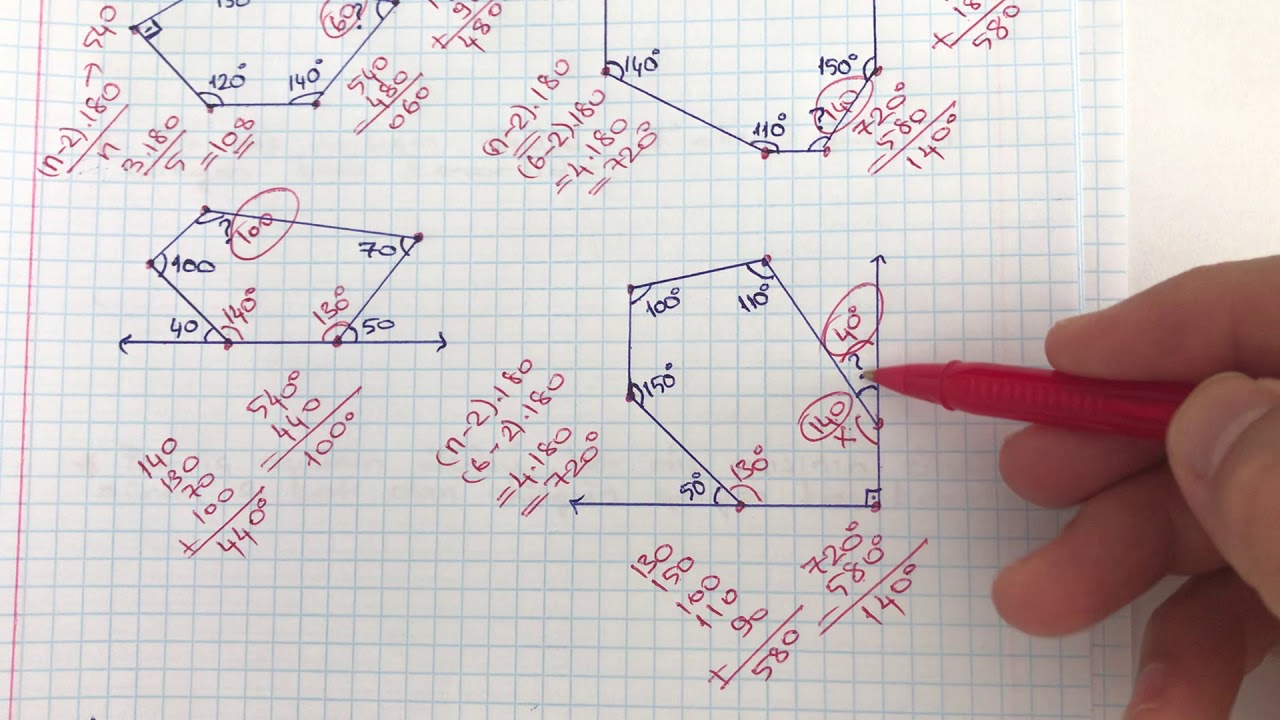 540
(n-2).180
n
3.180
5
=108
120°
140°
60
?
480
540
480
060
140°
(n-2).180
(6-2).180
=4.180
=720°
110°
150°
?
140
580
720°
580
140°
?
100
100
70
40
140°
130°
50
140
130
70
100
+
440°
540°
440
100°
(n-2).180
(6-2).180
=4.180
=720°
100°
110°
150°
50°
130°
40°
?
140
x
130
150
100
110
90
+
580
720°
580°
140°